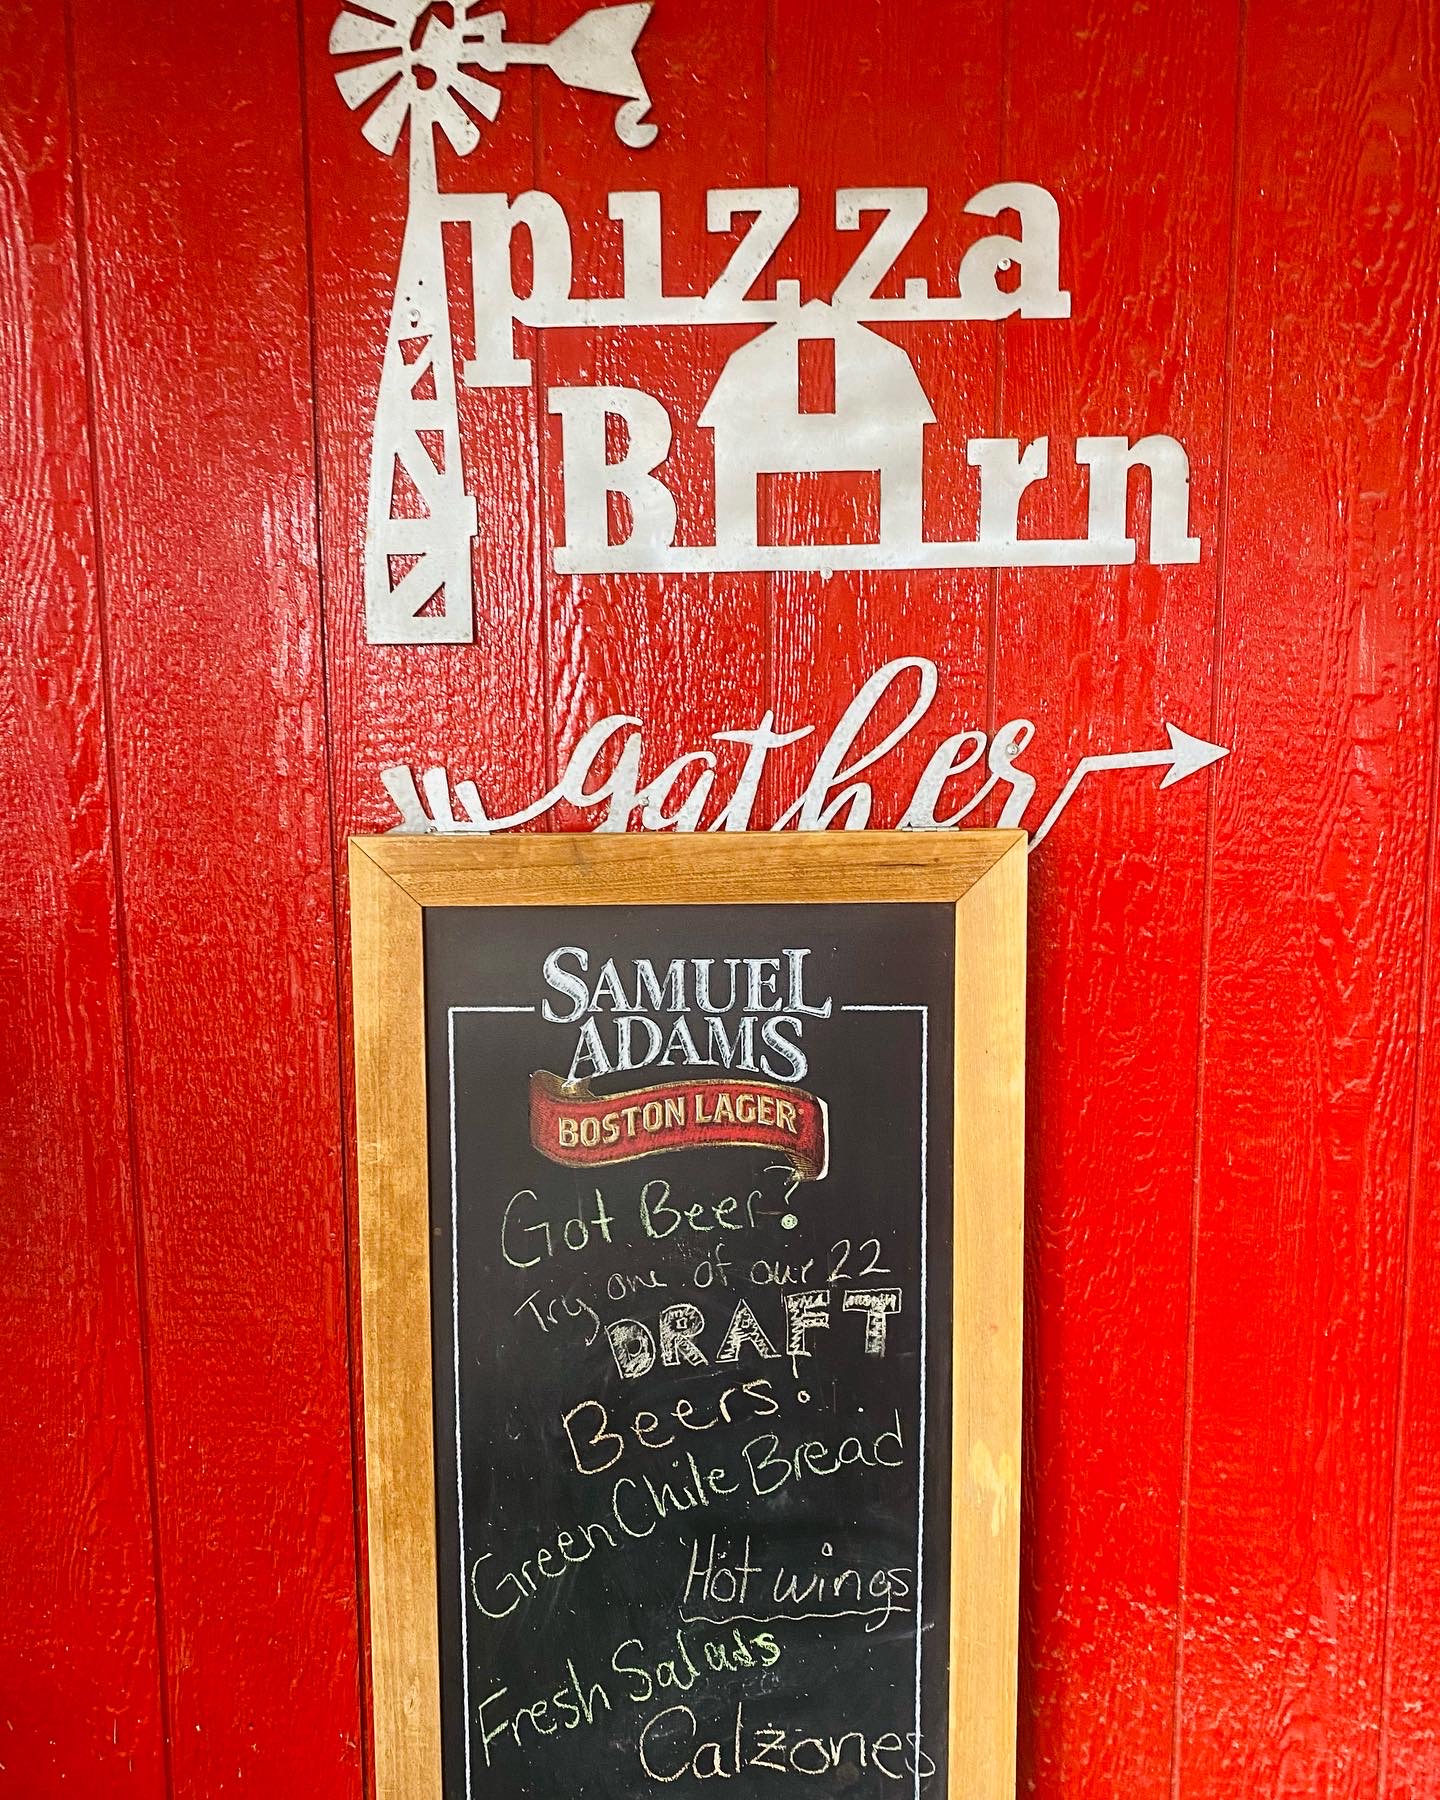 pizza
Barn
gather
SAMUEL
ADAMS
BOSTON LAGER
Got Beer?
Try one of our 22
DRAFT
Beers!
Green Chile Bread
Hot wings
Fresh Salads
Calzones